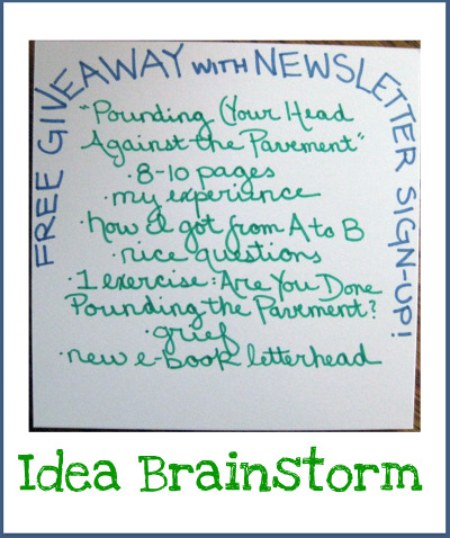 FREE GIVEAWAY WITH NEWSLETTER SIGN-UP!
"Pounding (Your Head
Against the Pavement"
· 8-10 pages
· my experience
· how I got from A to B
· nice questions
· 1 exercise: Are You Done
Pounding the Pavement?
· grief
· new e-book letterhead
Idea Brainstorm